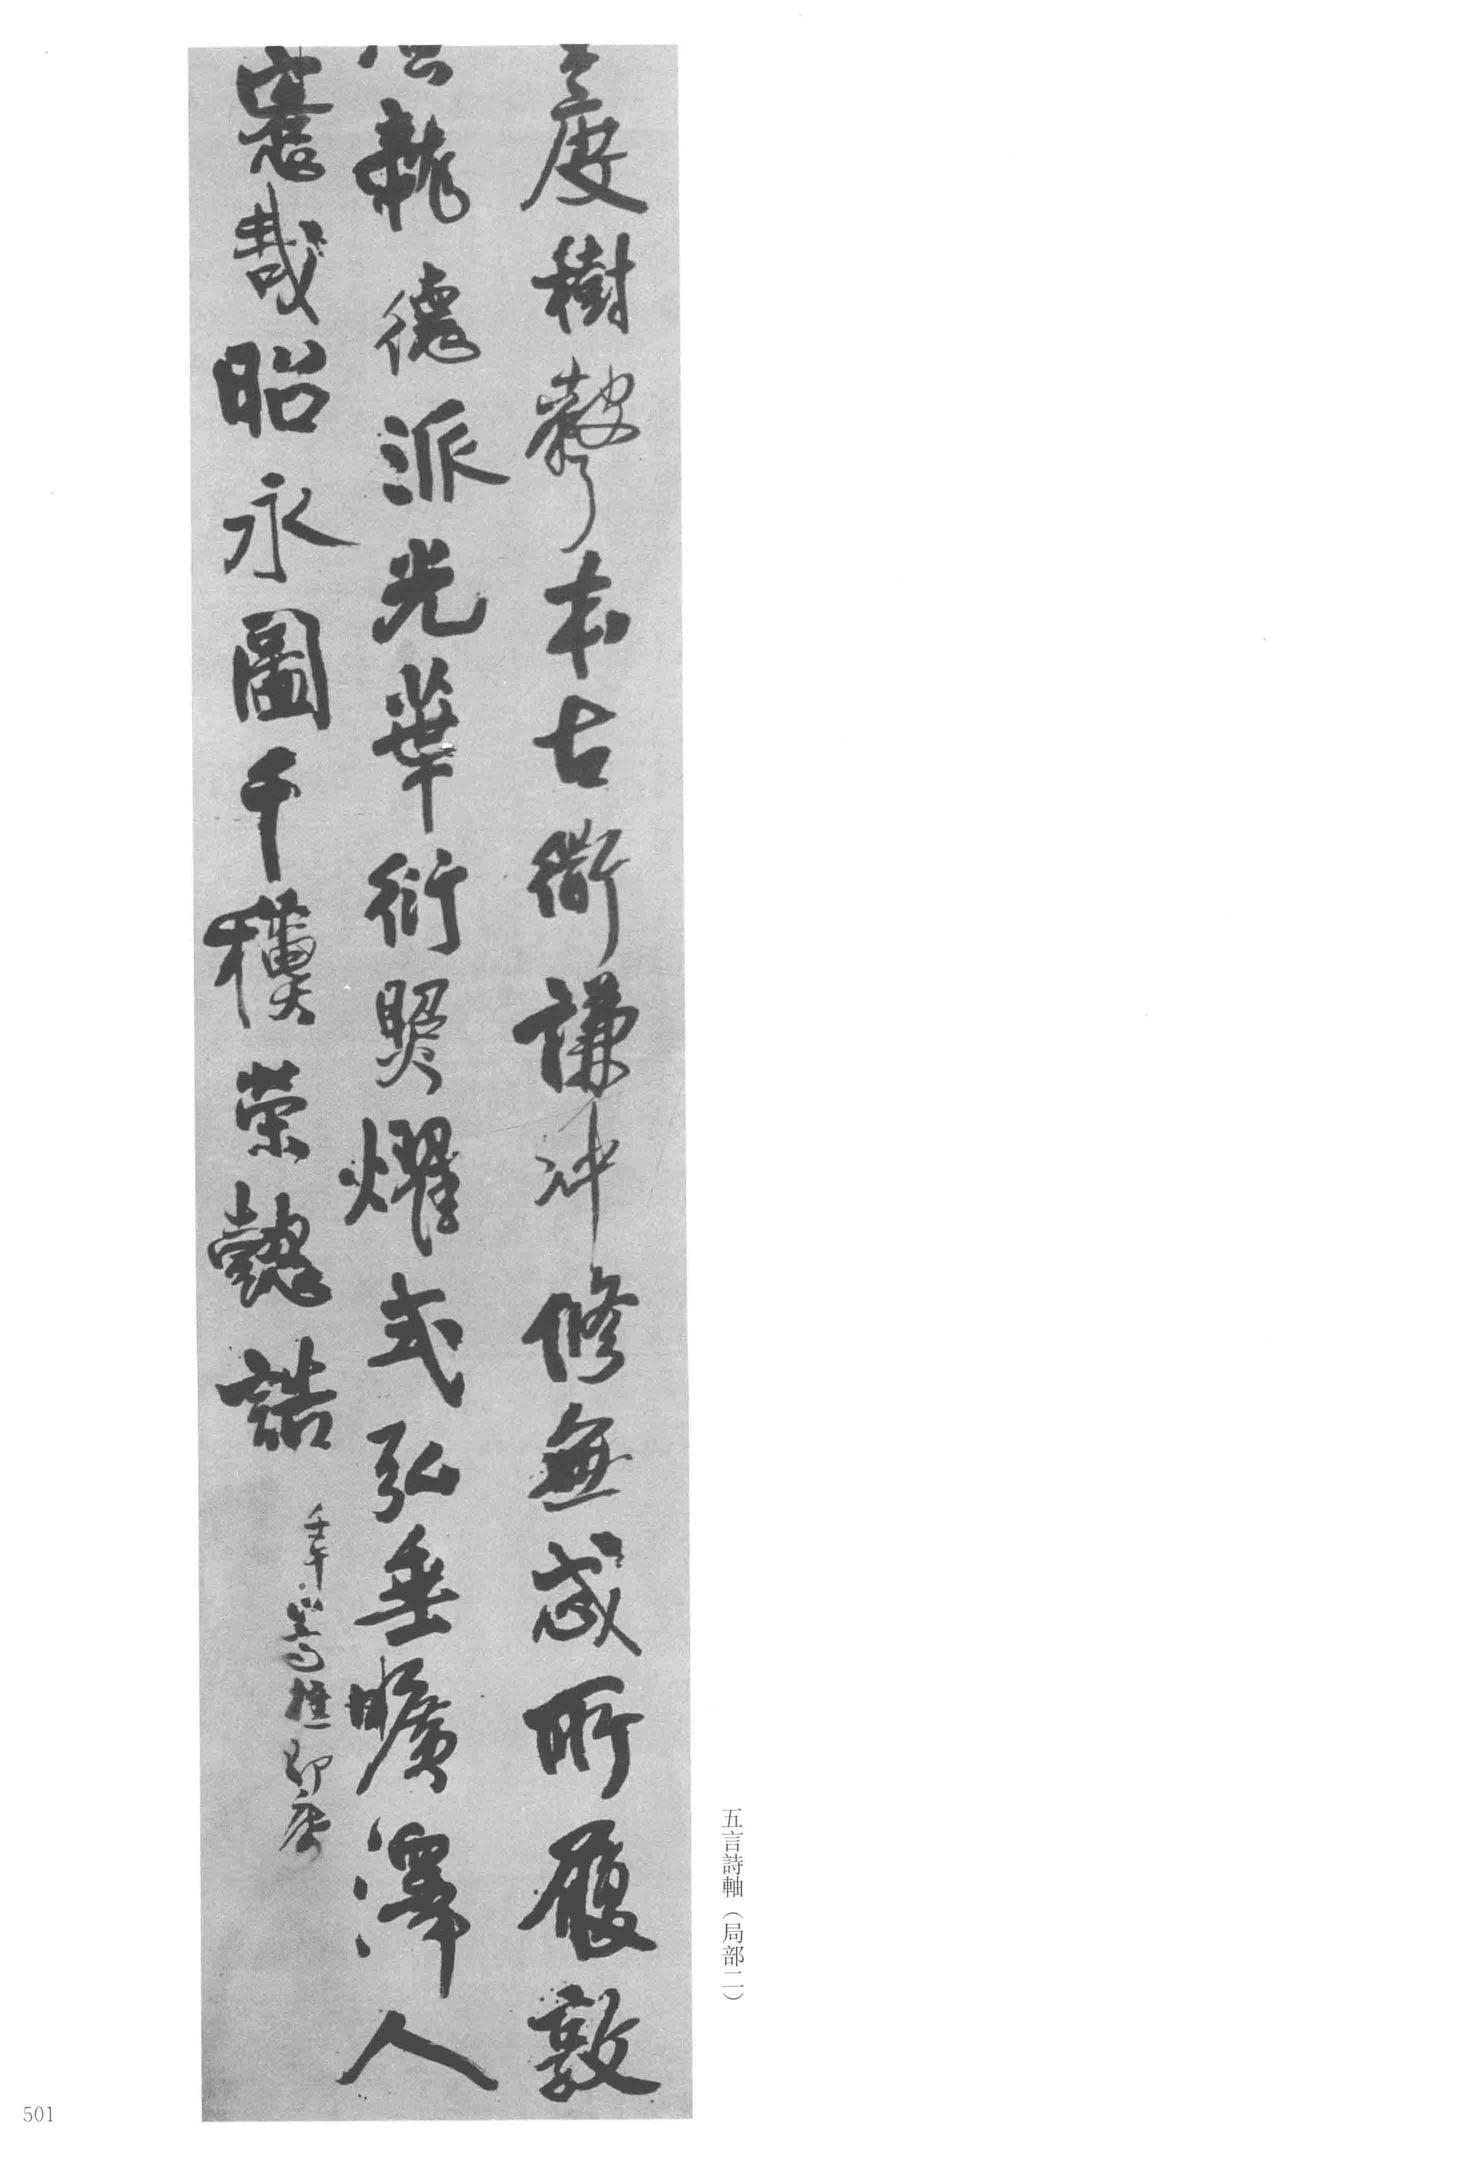 度樹聲本古衛謙冲修無忒所履敦
龍德派光華衍照耀式弘垂曠澤人
憲哉昭永圖千穫荣懿誥
嵩樵印廣
五言詩軸（局部二）
501